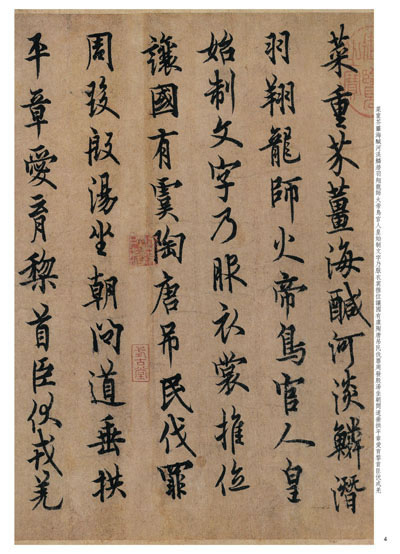 菜重芥薑海鹹河淡鱗潛羽翔龍師火帝鳥官人皇始制文字乃服衣裳推位讓國有虞陶唐吊民伐罪周發殷湯坐朝問道垂拱平章愛育黎首臣伏戎羌
菜重芥薑海鹹河淡鱗潛
羽翔龍師火帝鳥官人皇
始制文字乃服衣裳推位
讓國有虞陶唐吊民伐罪
周發殷湯坐朝問道垂拱
平章愛育黎首臣伏戎羌
4